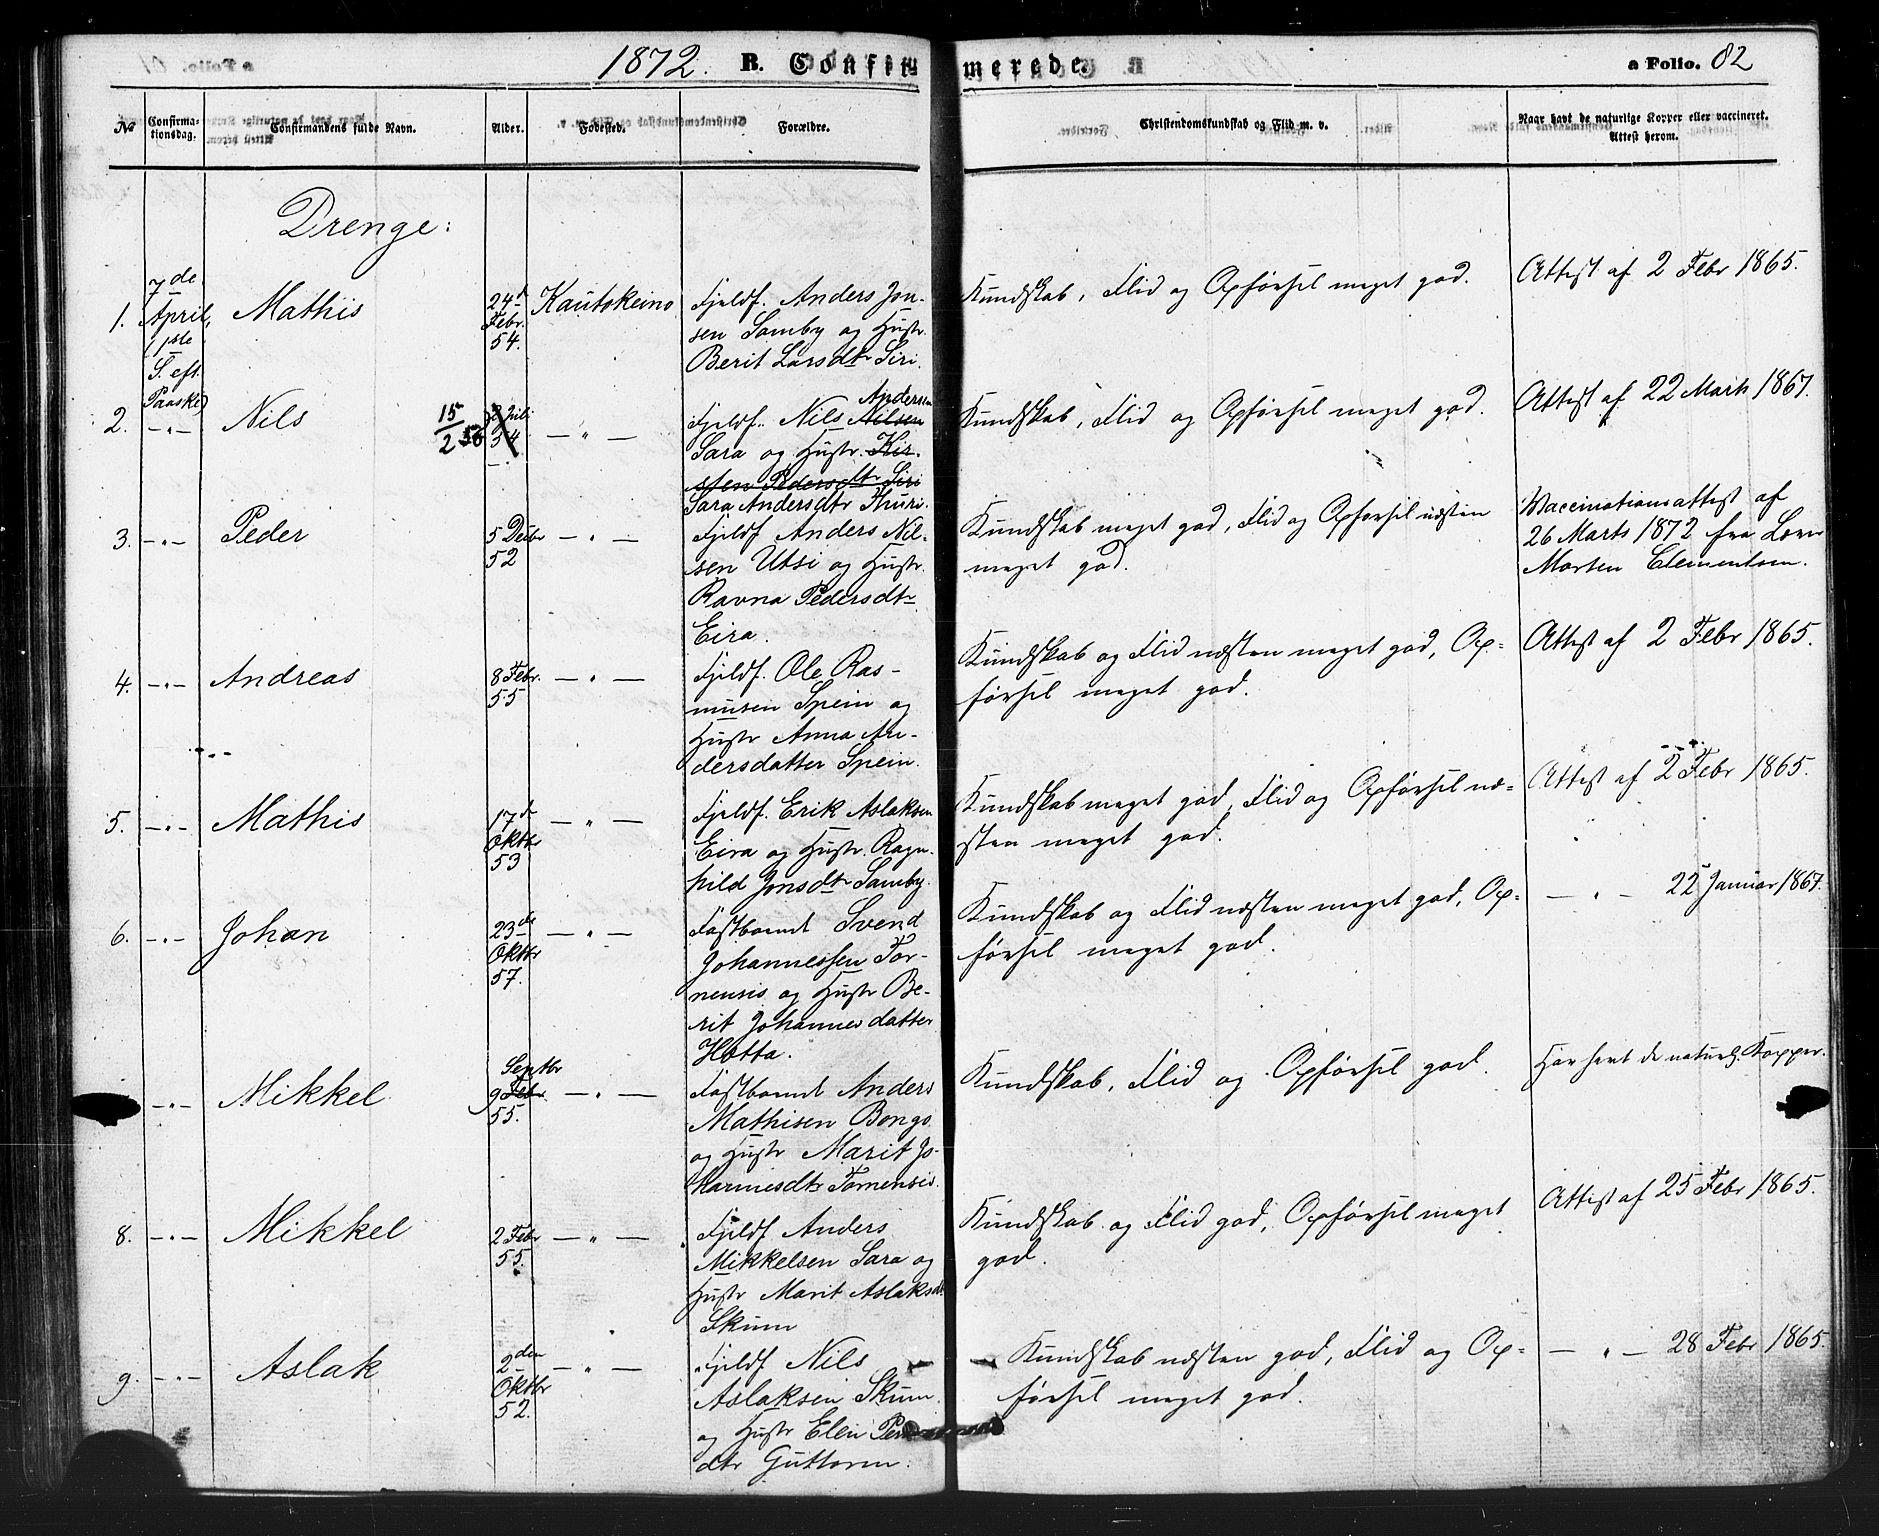 1872. R. Confirmerede. a Folio. 82
No Confirmationsdag. Confirmandens fulde Navn. Alder. Fødested. Forældre. Christendomskundskab og Flid m. v. Naar havt de naturlige Kopper eller vaccineret. Attest herom.
Drenge:
1. 7de April, 1ste S. eft. Paaske
Mathis
24de Febr. 54.
Kautokeino
Fjeldf. Anders Jon-
sen Somby og Hustr.
Berit Larsdtr Siri.
Kundskab, Flid og Opførsel meget god.
Attest af 2 Febr 1865.
2. —"—
Nils
15/2 56 Juli 54
— " —
Fjeldf. Nils Nilsen Andersen
Sara og Hustr. Kir-
sten Pedersdtr Siri
Sara Andersdtr Thuri.
Kundskab, Flid og Opførsel meget god.
Attest af 22 Marts 1867.
3. —"—
Peder
5 Decbr 52
— " —
Fjeldf Anders Nil-
sen Utsi og Hustr.
Ravna Pedersdtr
Eira.
Kundskab meget god, Flid og Opførsel næsten
meget god.
Vaccinationsattest af
26 Marts 1872 fra
Morten Clementsen.
4. —"—
Andreas
8 Febr. 55
— " —
Fjeldf. Ole Ras-
musen Spein og
Hustr Anna An-
dersdatter Spein.
Kundskab og Flid næsten meget god, Op-
førsel meget god.
Attest af 2 Febr 1865.
5. —"—
Mathis
17de Oktbr 53
— " —
Fjeldf. Erik Aslaksen
Eira og Hustr. Ragn-
hild Jonsdtr Somby.
Kundskab meget god, Flid og Opførsel næ-
sten meget god.
Attest af 2 Febr 1865.
6. —"—
Johan
23de Oktbr 57.
— " —
Fastboende Svend
Johannessen Tor-
nensis og Hustr Be-
rit Johannesdatter
Hætta.
Kundskab og Flid næsten meget god, Op-
førsel meget god.
— " — 22 Januar 1867.
—"—
Mikkel
9 Febr. Septbr 55.
— " —
Fastboende Anders
Mathisen Bongo
og Hustr Marit Jo-
hannesdtr Tornensis.
Kundskab, Flid og Opførsel god.
Har havt de naturl. Kopper.
8. —"—
Mikkel
2 Febr 55.
— " —
Fjeldf Anders
Mikkelsen Sara og
Hustr Marit Aslaksdt.
Skum
Kundskab og Flid god, Opførsel meget
god.
Attest af 25 Febr 1865.
9. —"—
Aslak
2den Oktbr 52.
— " —
Fjeldf Nils
Aslaksen Skum
og Hustr Elen
dtr Guttorm.
Kundskab næsten god, Flid og Op-
førsel meget god.
— " — 28 Febr 1865.